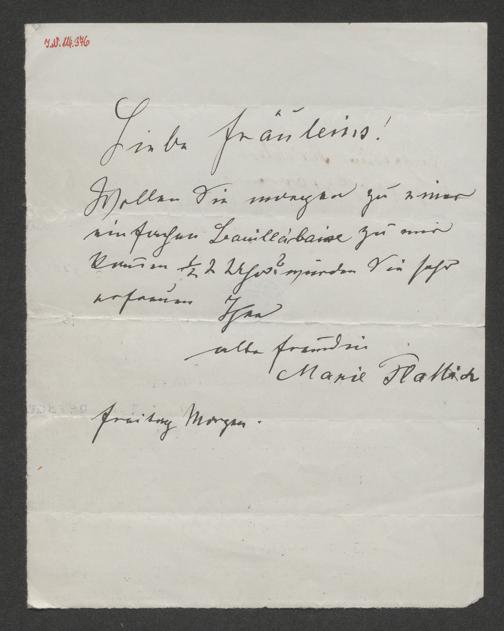 I.N. 114.376
Liebe Fräuleins!
Wollen Sie morgen zu einer
einfachen Bouillabaise zu mir
kommen ½ 2 Uhr? würden Sie sehr
erfreuen Ihre
alte Freundin
Marie
Freitag Morgen.